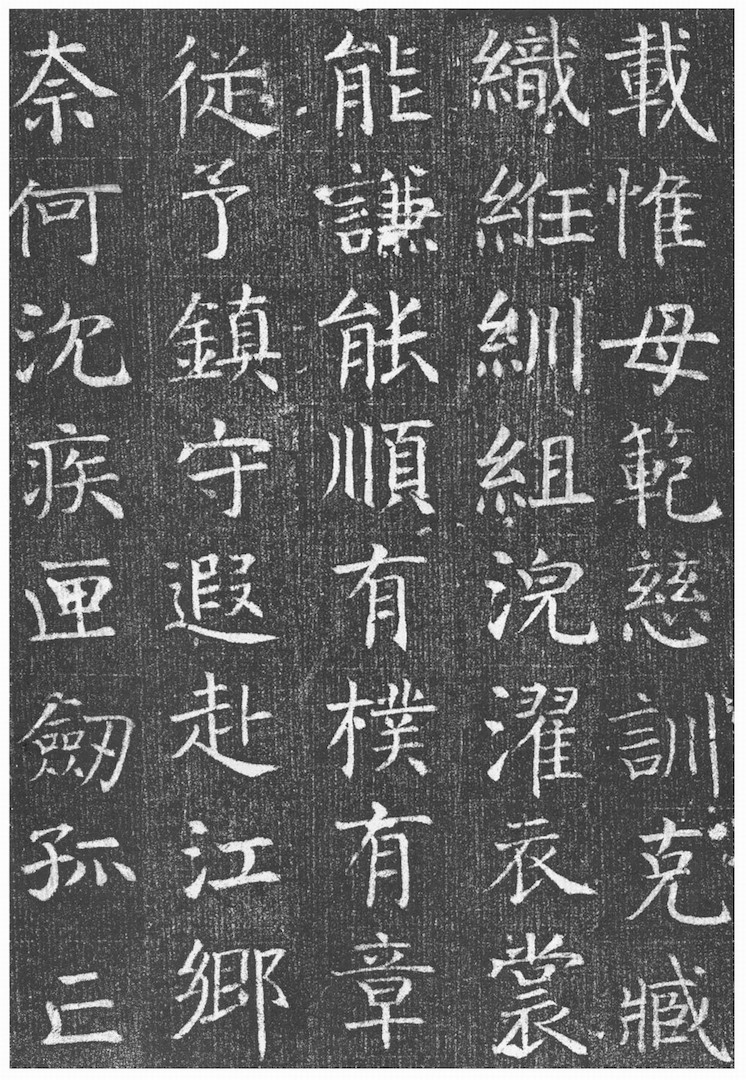 載惟母範慈訓克臧
織絍紃組浣濯衣裳
能謙能順有樸有章
従予鎮守遐赴江鄉
奈何沈疾匣劒孤亡